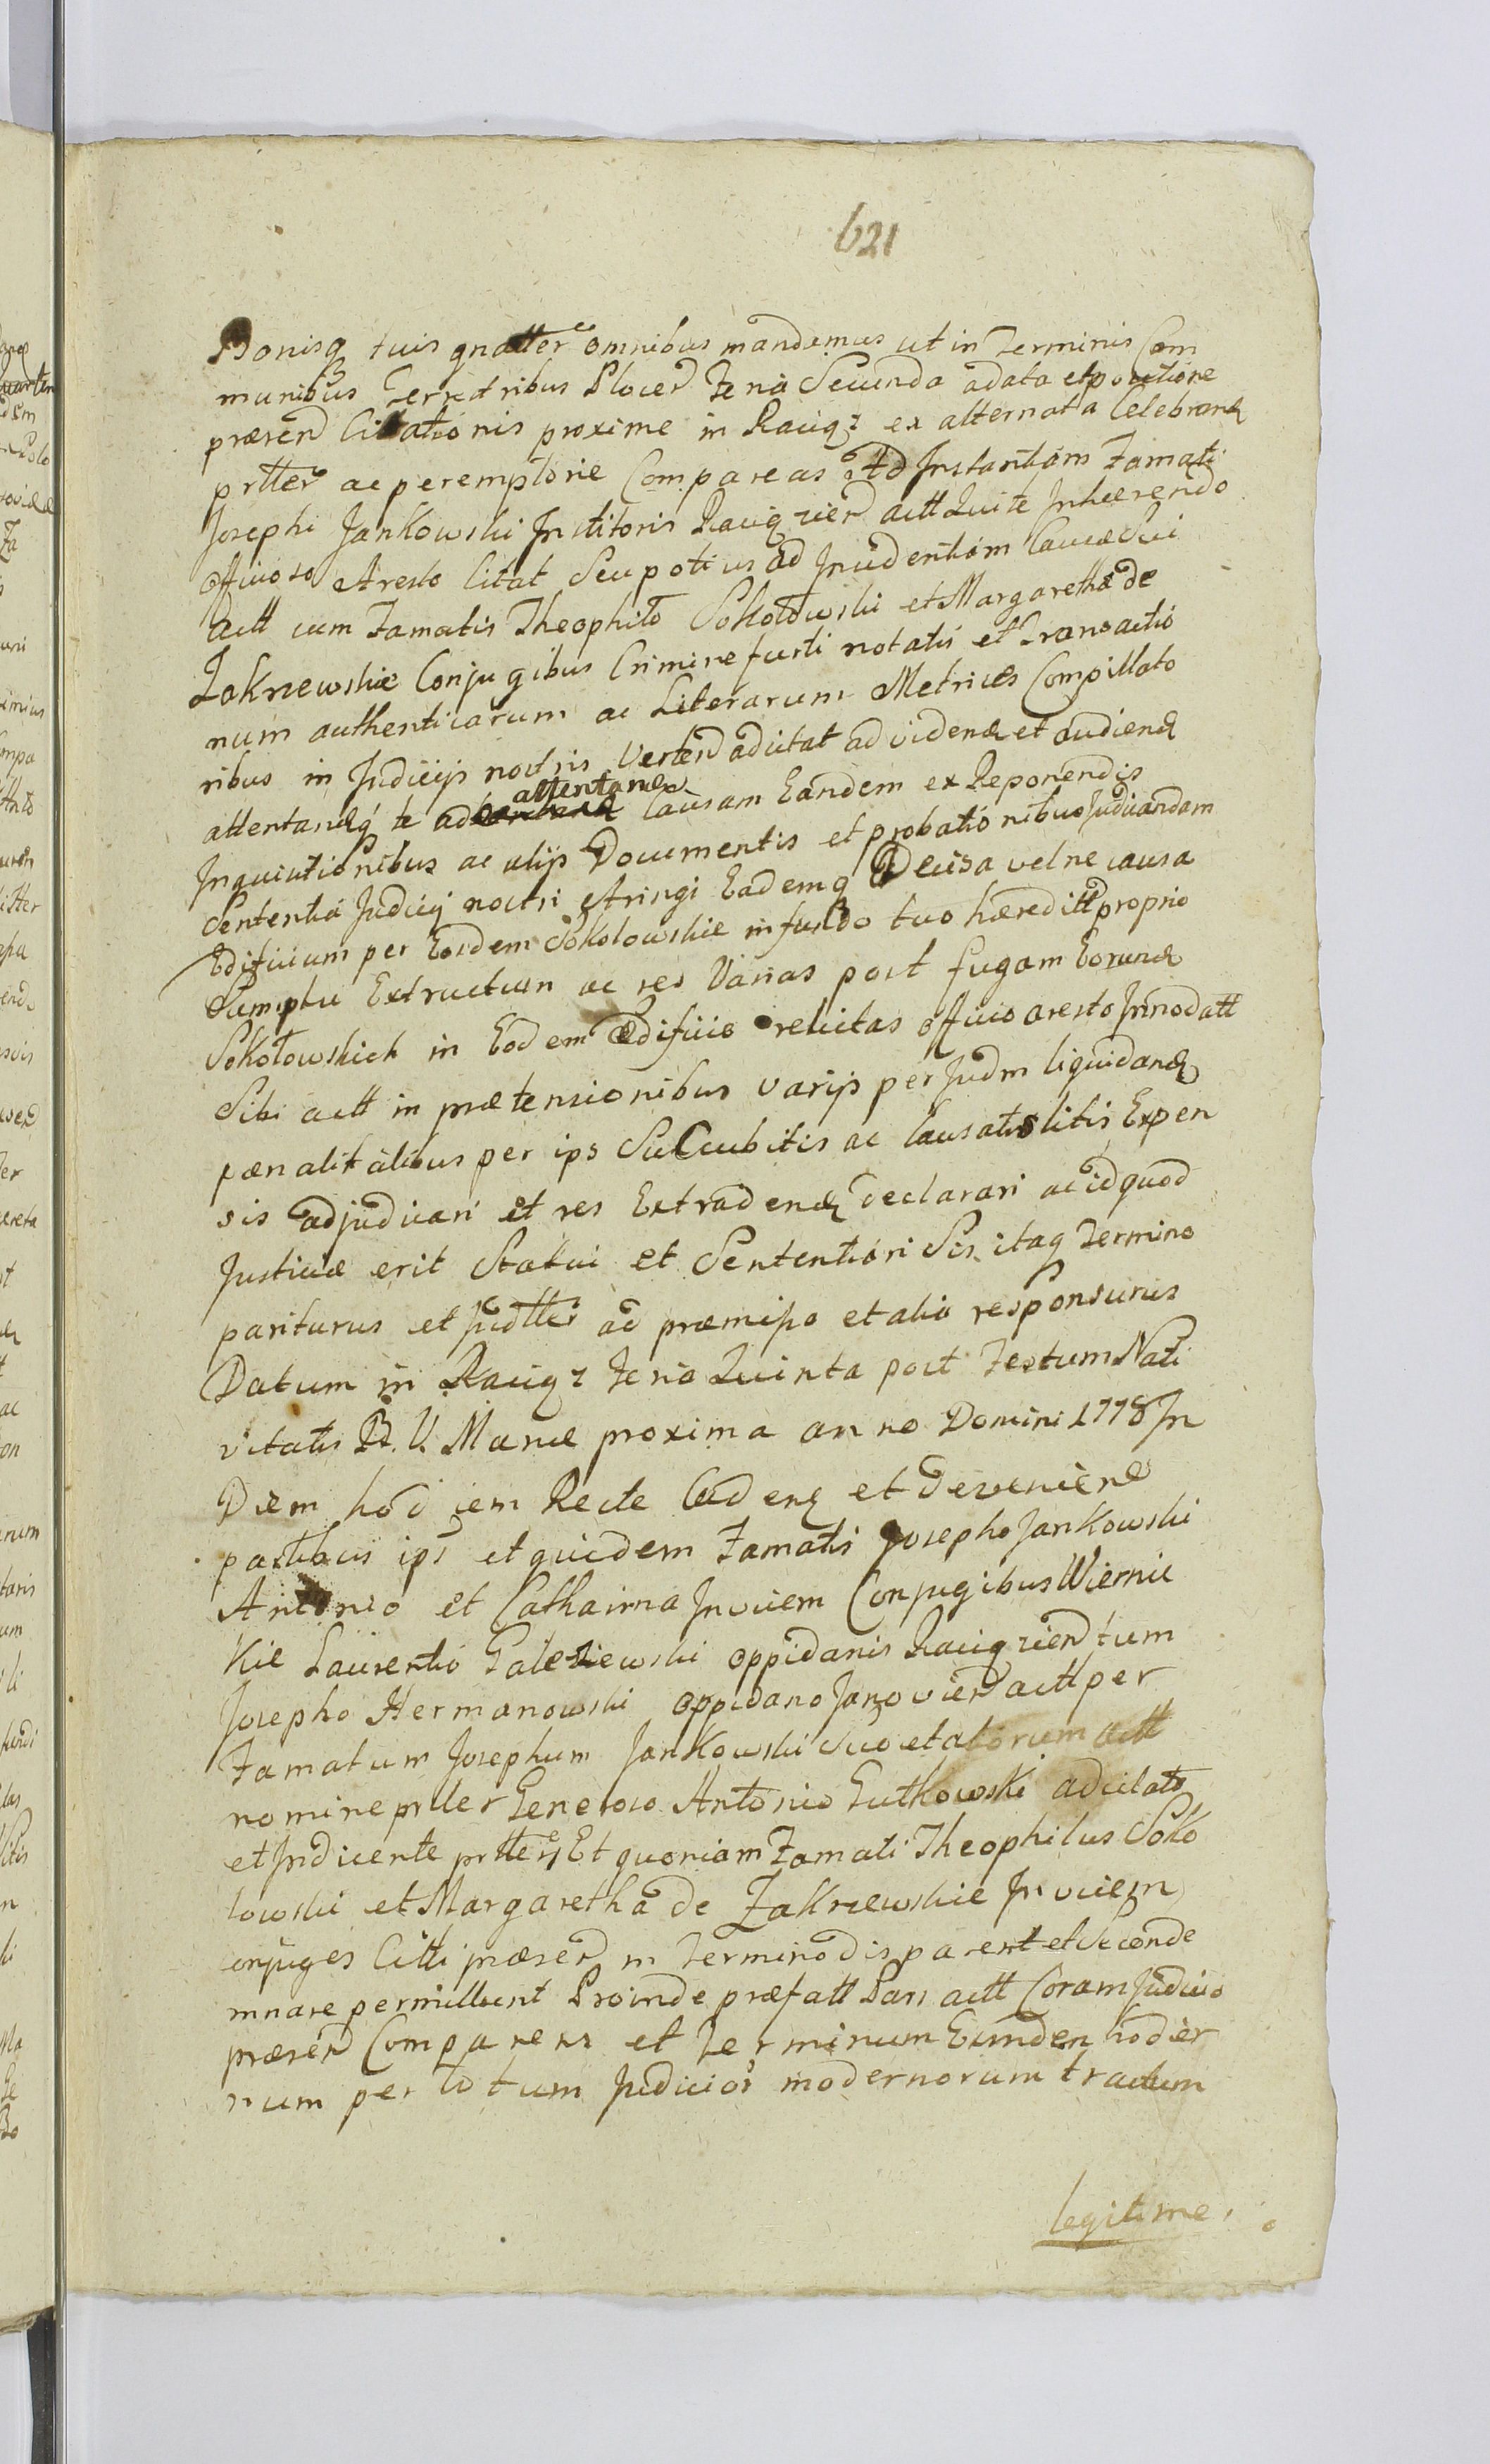 621
Bonisq tuis gnatter omnibus mandamus ut in Terminis Com
munibus Terrestribus Plocen Feria Secunda a data et positione
præsen Citationis proxime in Raciąz ex alternata Celebrand
prtter ac peremptorie Compareas Ad Instantiam Famati
Josephi Jankowski Institoris Raciązien actt Qui te Inhærendo
Officioso Aresto Citat Seu potius ad Incidentiam Causæ Sui
actt cum Famatis Theophilo Sokołowski et Margaretha de
Zakrzewskie Conjugibus Crimine furti notatis et Transactio
num authenticarum ac Literarum Metrices Compillato
ribus in Judicijs nostris Verten adcitat ad videnď et audienď
attentandq te ad attentand Causam Eandem ex Reponendis
Inquisitionibus ac alijs Documentis et probationibus Judicandam
Sententia Judicij nostri Stringi Eademq Decisa vel ne causa
Edificium per Eosdem Sokolowskie in fundo tuo hæreditt proprio
Sumptu Extructum ac res Varias post fugam Eorund
Sokołowskich in Eodem Ædificio relictas officio aresto Innodatt
Sibi actt in prætensionibus varijs per Judm liquidand
pænalitatibus per ips Succubitis ac Causatis litis Expen
sis adjudicari et res Extradend declarari ac id quod
Justiciæ erit Statui et Sententiari Sis itaq Termino
pariturus et Judtter ad præmissa et alia responsurus
Datum in Raciąz Feria Quinta post Festum Nati
vitatis B. V. Mariæ proxima anno Domini 1778 In
Diem hod iem Recte Cadenq et Devenien
partibus ips et quidem Famatis Josepho Jankowski
Antonio et Catharina Invicem Conjugibus Wiernic
kie Laurentio Galeziewski oppidanis Raciązien tum
Josepho Hermanowski oppidano Janovien actt per
Famatum Josephum Jankowski Suo et aliorum actt
nomine prtter Generoso Antonio Gutkowski adcitato
et Indicente prtter Et quoniam Famati Theophilus Soko
łowski et Margaretha de Zakrzewskie Invicem
conjuges Citti præsen in Termino disparent et Se conde
mnare permittunt Proinde præfatt Pars actt Coram Judicio
præsen Comparens et Terminum Eundem hodier
num per totum Judicior modernorum tractum
legitime